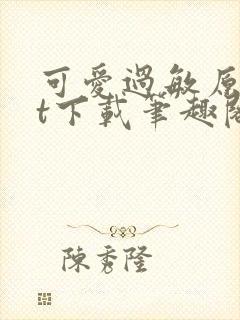 可愛過敏原
t下載筆趣閣
陳秀隆